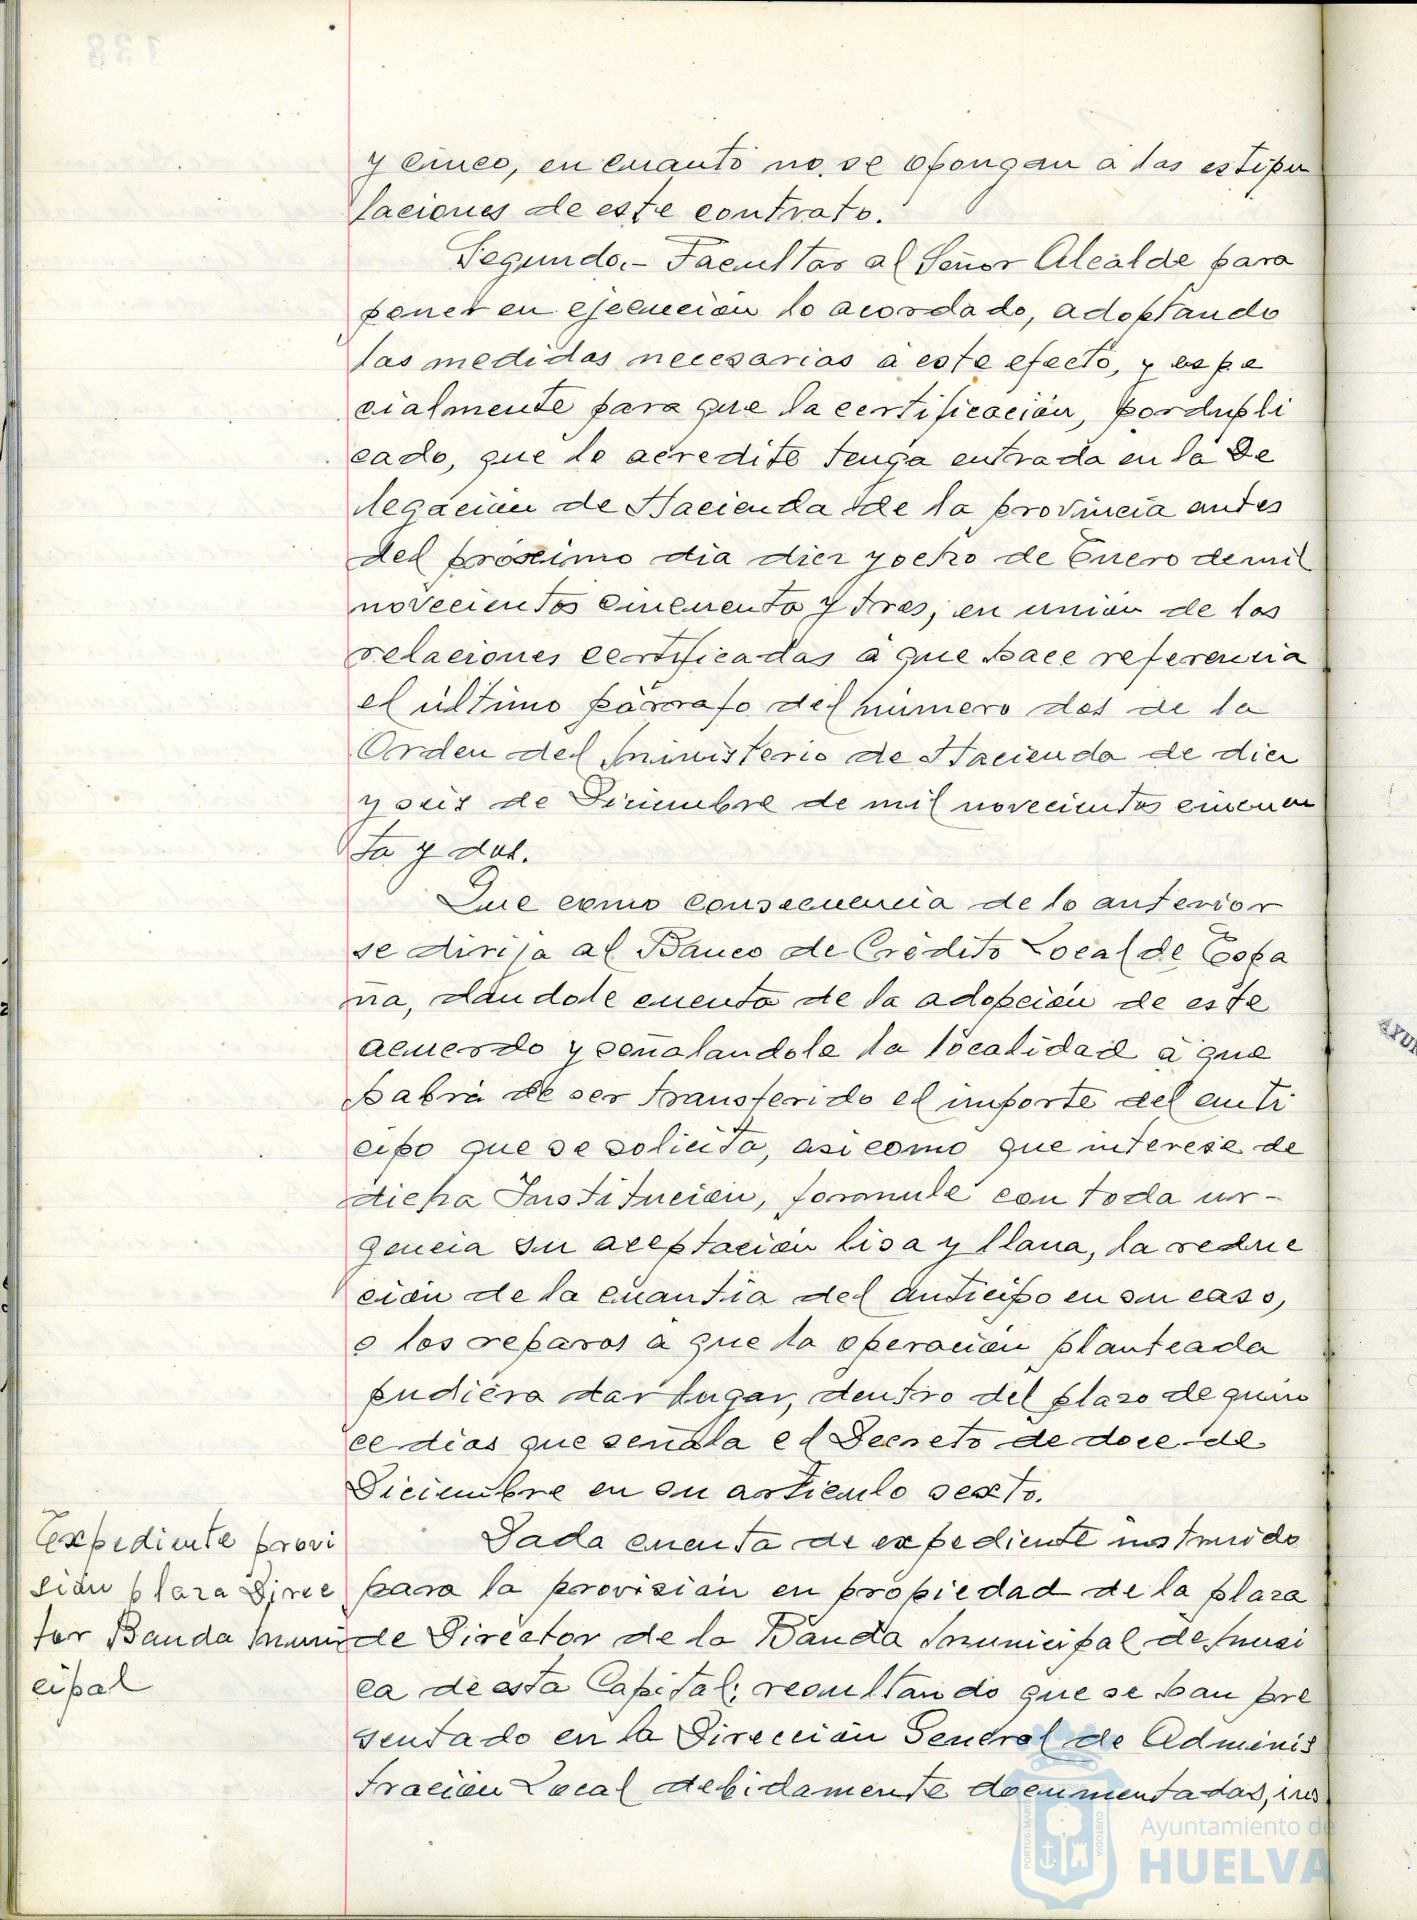 y cinco, en cuanto no se opongan a las estipu
laciones de este contrato.
Segundo.- Facultar al Señor Alcalde para
poner en ejecución lo acordado, adoptando
las medidas necesarias a este efecto, y espe
cialmente para que la certificación, por dupli
cado, que lo acredite tenga entrada en la De
legación de Hacienda de la provincia antes
del próximo dia diez y ocho de Enero de mil
novecientos cincuenta y tres, en unión de las
relaciones certificadas a que hace referencia
el último párrafo del número dos de la
Orden del Ministerio de Hacienda de diez
y seis de Diciembre de mil novecientos cincuen
ta y dos.
Que como consecuencia de lo anterior
se dirija al Banco de Crédito Local de Espa
ña, dandole cuenta de la adopción de este
acuerdo y señalandole la localidad a que
habrá de ser transferido el importe del anti
cipo que se solicita, asi como que interese de
dicha Institución, formule con toda ur-
gencia su aceptación lisa y llana, la reduc
ción de la cuantia del anticipo en su caso,
o los reparos a que la operación planteada
pudiera dar lugar, dentro del plazo de quin
ce dias que señala el Decreto de doce de
Diciembre en su articulo sexto.
Expediente provi
sión plaza Direc
tor Banda Muni
cipal
Dada cuenta de expediente instruido
para la provisión en propiedad de la plaza
de Director de la Banda Municipal de Musi
ca de esta Capital; resultando que se han pre
sentado en la Dirección General de Adminis
tración Local debidamente documentadas, ins
Ayuntamiento de
HUELVA